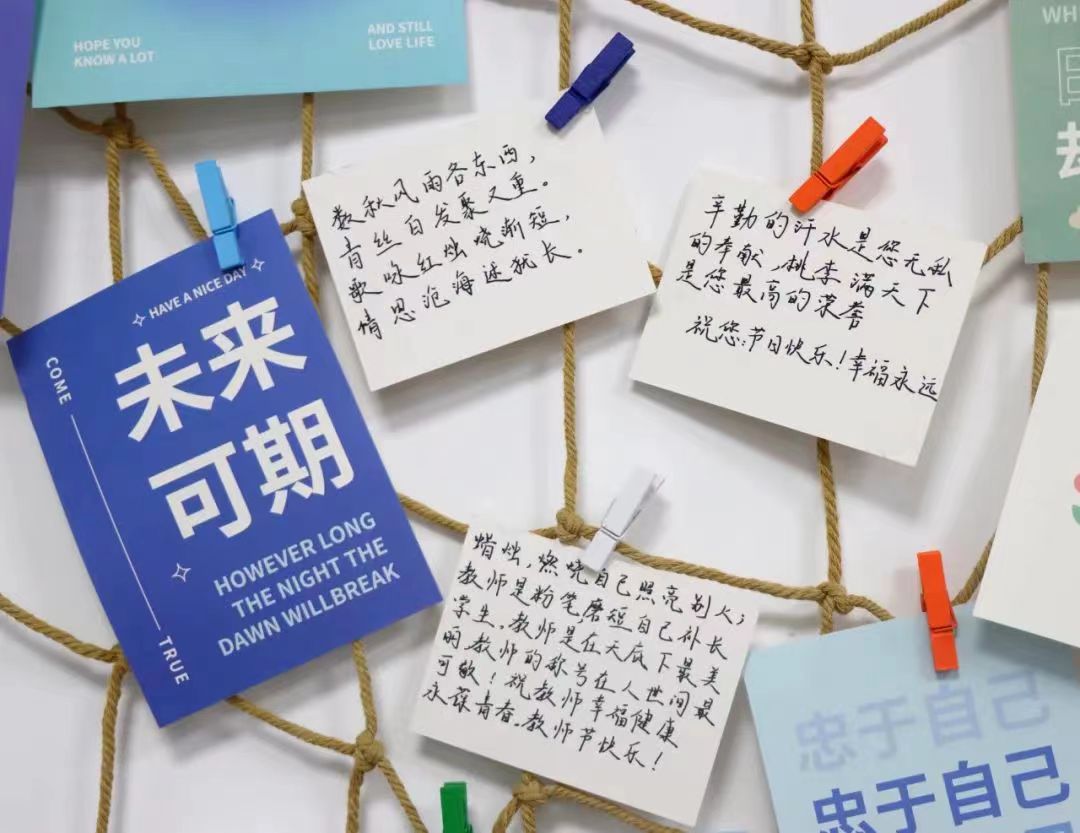 HOPE YOU
KNOW A LOT
AND STILL
LOVE LIFE
WH
数秋风雨各东西，
青丝白发聚又重。
歌咏红烛烧渐短，
情思沧海迷犹长。
辛勤的汗水是您无私
的奉献，桃李满天下
是您最高的荣誉
祝您:节日快乐！幸福永远
HAVE A NICE DAY
未来
可期
COME
TRUE
HOWEVER LONG
THE NIGHT THE
DAWN WILLBREAK
蜡烛，燃烧自己照亮别人；
教师是粉笔磨短自己补长
学生。教师是在天底下最美
丽教师的称号在人世间最
可敬！祝教师幸福健康
永葆青春。教师节快乐！
忠于自己
忠于自己